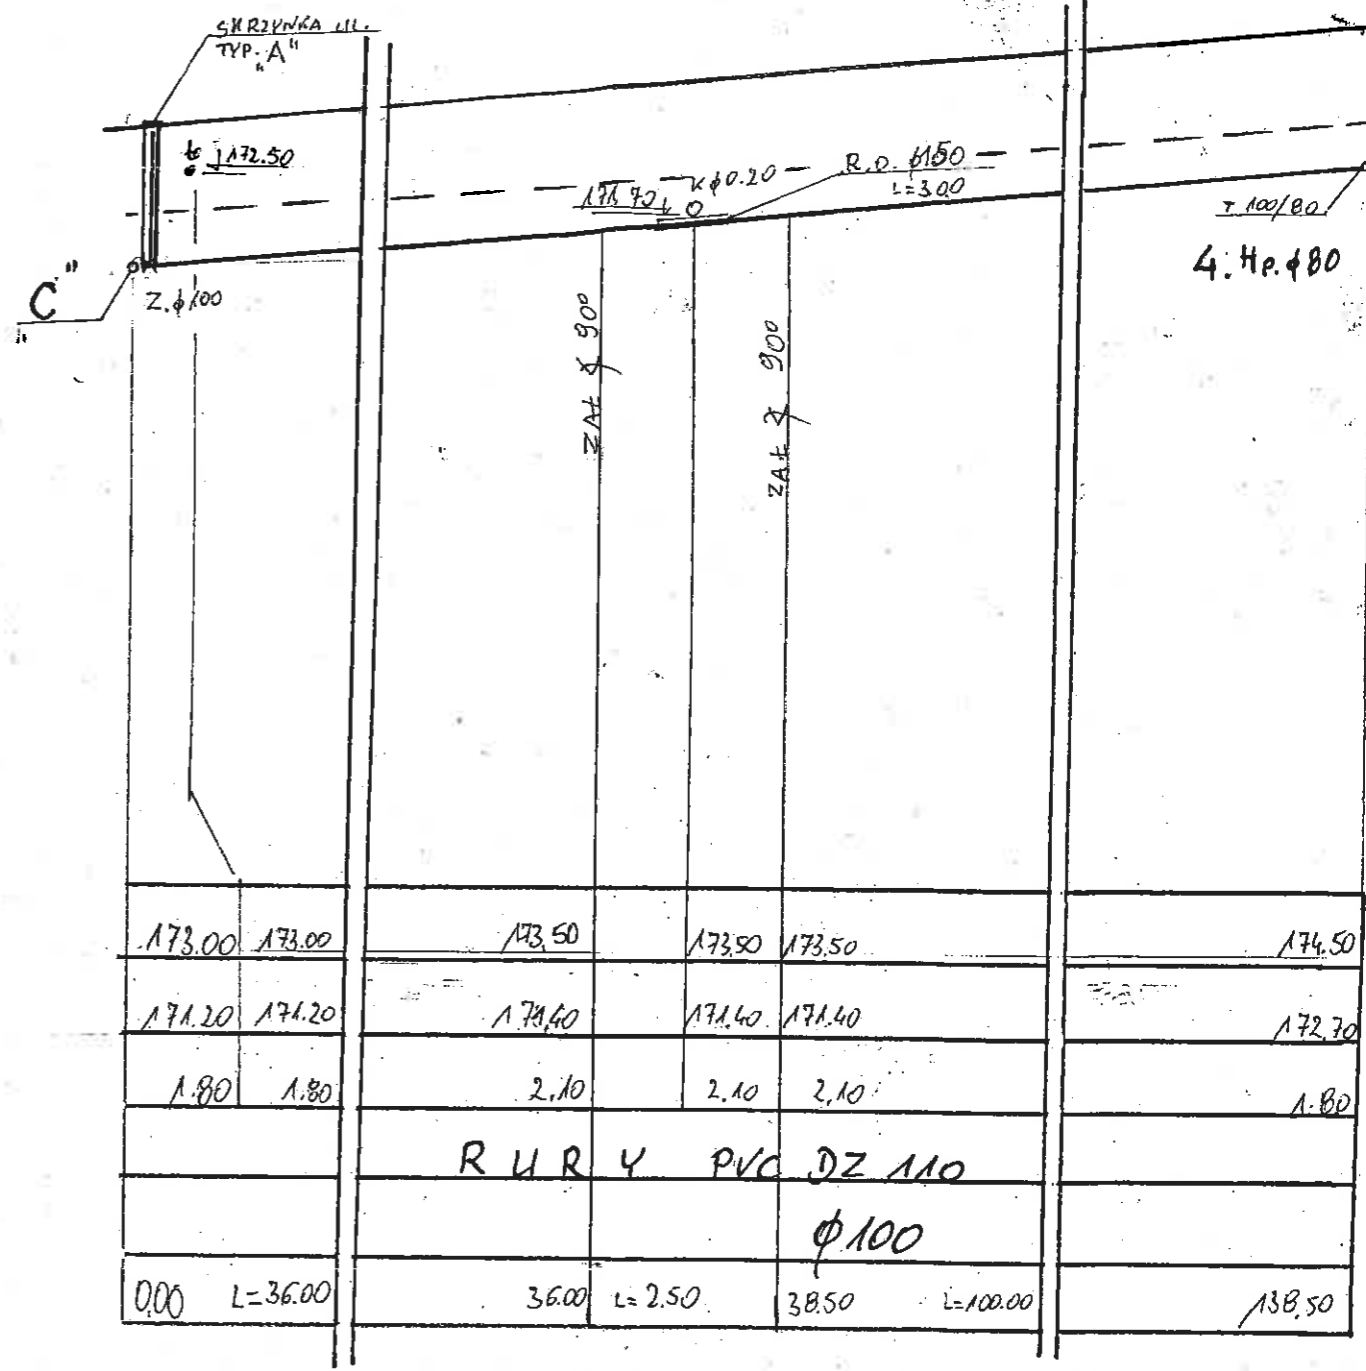 SKRZYNKA UL.
TYP. „A"
172.50
171.70 K ϕ0.20
R.O. ϕ150
L=3.00
T 100/80
4. Hp. ϕ80
„C"
Z. ϕ100
ZAŁ ∢ 90°
ZAŁ ∢ 90°
173.00 173.00 173.50 173.50 173.50 174.50
171.20 171.20 171.40 171.40 171.40 172.70
1.80 1.80 2.10 2.10 2.10 1.80
RURY PVC DZ 110
ϕ100
0.00 L=36.00 36.00 L=2.50 38.50 L=100.00 138.50